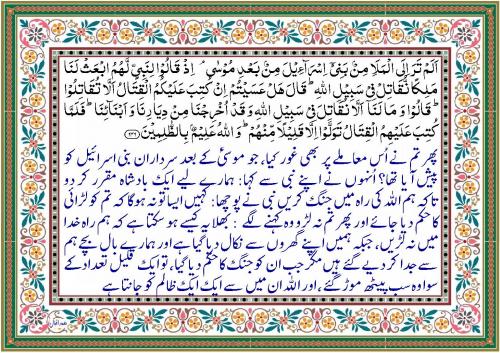 اَلَمْ تَرَ اِلَى الْمَلَاِ مِنْۢ بَنِیْۤ اِسْرَآءِیْلَ مِنْۢ بَعْدِ مُوْسٰیۘ اِذْ قَالُوْا لِنَبِیٍّ لَّهُمُ ابْعَثْ لَنَا
مَلِكًا نُّقَاتِلْ فِیْ سَبِیْلِ اللهِؕ قَالَ هَلْ عَسَیْتُمْ اِنْ كُتِبَ عَلَیْكُمُ الْقِتَالُ اَلَّا تُقَاتِلُوْاؕ
قَالُوْا وَ مَا لَنَاۤ اَلَّا نُقَاتِلَ فِیْ سَبِیْلِ اللهِ وَ قَدْ اُخْرِجْنَا مِنْ دِیَارِنَا وَ اَبْنَآىِٕنَاؕ فَلَمَّا
كُتِبَ عَلَیْهِمُ الْقِتَالُ تَوَلَّوْا اِلَّا قَلِیْلًا مِّنْهُمْؕ وَ اللهُ عَلِیْمٌۢ بِالظّٰلِمِیْنَ ﴿۲۴۶﴾
پھر تم نے اُس معاملے پر بھی غور کیا، جو موسیٰؑ کے بعد سردارانِ بنی اسرائیل کو
پیش آیا تھا؟ اُنہوں نے اپنے نبی سے کہا: ہمارے لیے ایک بادشاہ مقرر کر دو
تاکہ ہم اللہ کی راہ میں جنگ کریں نبی نے پوچھا: کہیں ایسا تو نہ ہوگا کہ تم کو لڑائی
کا حکم دیا جائے اور پھر تم نہ لڑو وہ کہنے لگے : بھلا یہ کیسے ہو سکتا ہے کہ ہم راہ خدا
میں نہ لڑیں، جبکہ ہمیں اپنے گھروں سے نکال دیا گیا ہے اور ہمارے بال بچے ہم
سے جدا کر دیے گئے ہیں مگر جب ان کو جنگ کا حکم دیا گیا، تو ایک قلیل تعداد کے
سوا وہ سب پیٹھ موڑ گئے، اور اللہ ان میں سے ایک ایک ظالم کو جانتا ہے